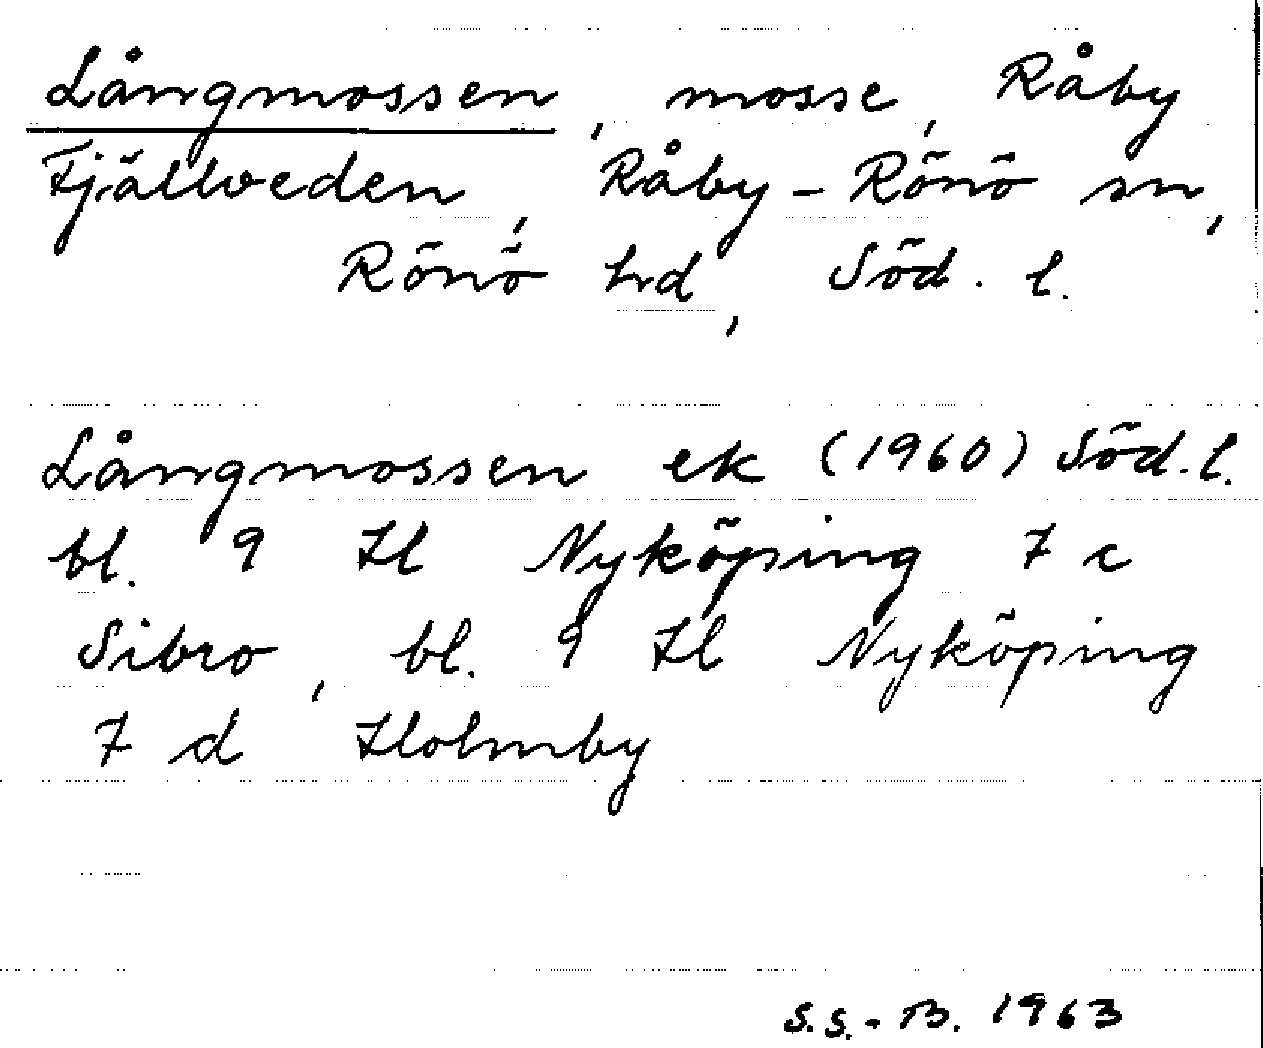 Långmossen, mosse, Råby
Fjällveden, Råby-Rönö sn,
Rönö hd, Söd. l.
Långmossen ek (1960) Söd. l.
bl. 9 H Nyköping 7 c
Sibro, bl. 9 H Nyköping
7 d Holmby
S.S.-B. 1963